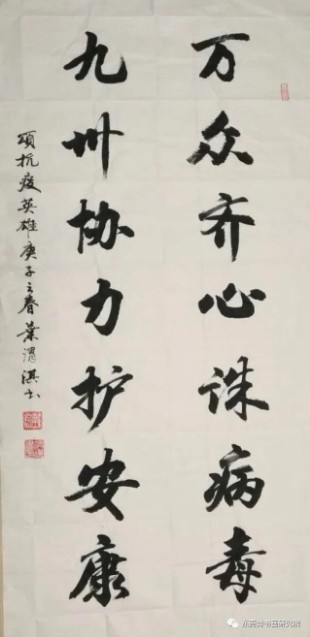 万众齐心诛病毒
九州协力护安康
颂抗疫英雄庚子之春叶渭淇书